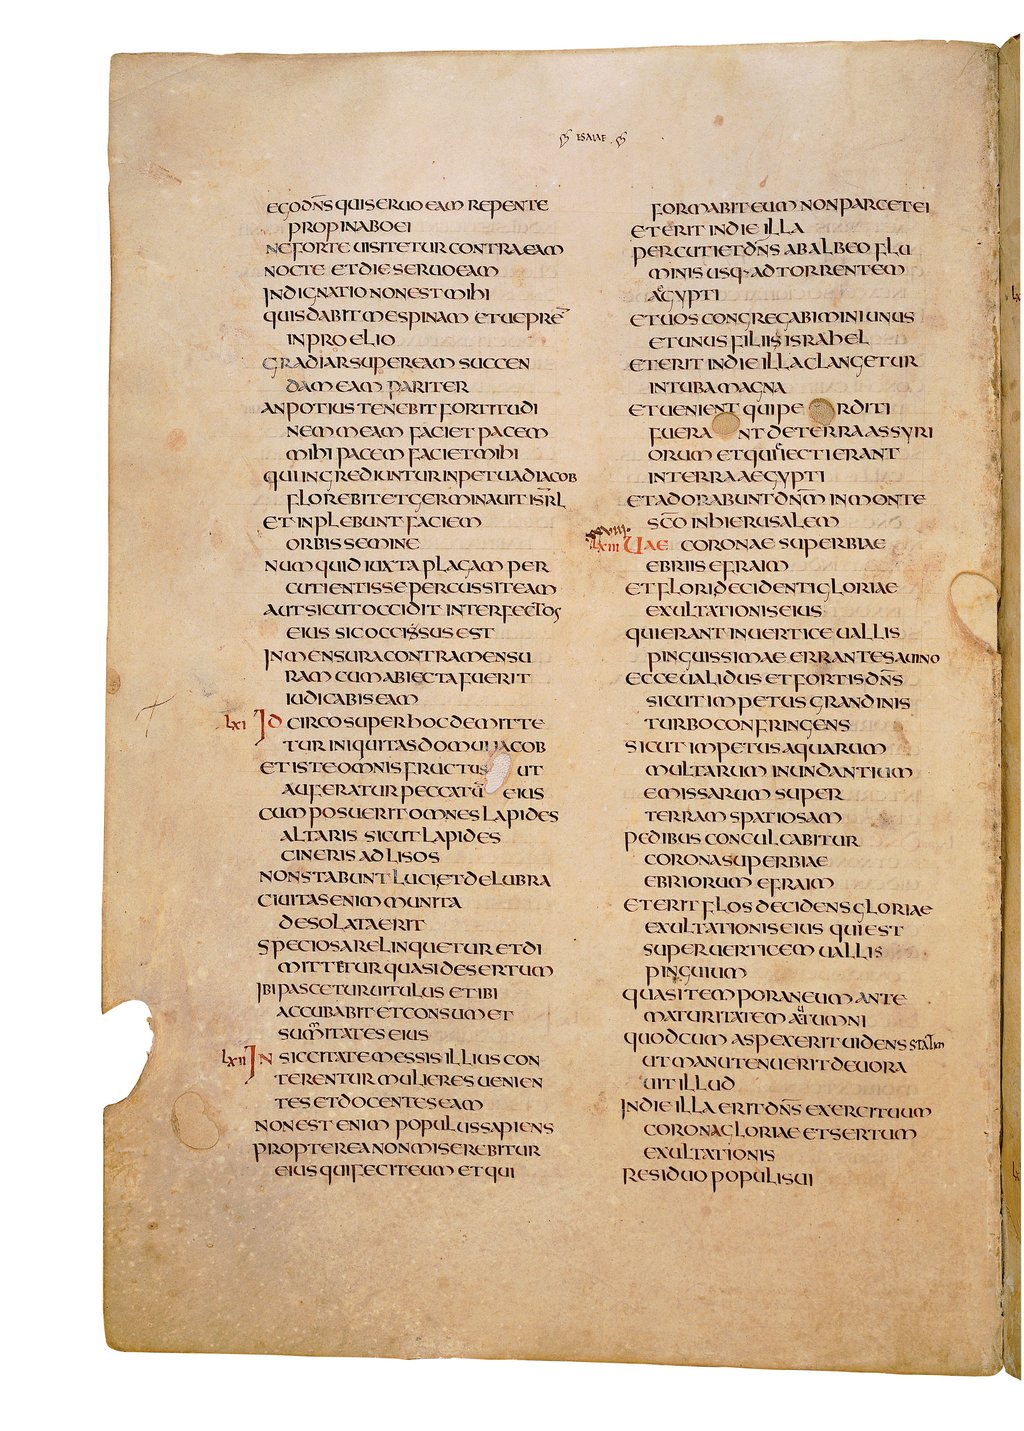 ESAIAE
EGO DN̄S QUI SERUO EAM REPENTE
PROPINABO EI
NE FORTE UISITETUR CONTRA EAM
NOCTE ET DIE SERUO EAM
INDIGNATIO NON EST MIHI
QUIS DABIT ME SPINAM ET UEPRĒ
IN PROELIO
GRADIAR SUPER EAM SUCCEN
DAM EAM PARITER
AN POTIUS TENEBIT FORTITUDI
NEM MEAM FACIET PACEM
MIHI PACEM FACIET MIHI
QUI INGREDIUNTUR INPETU AD IACOB
FLOREBIT ET GERMINAUIT ISR̄L
ET INPLEBUNT FACIEM
ORBIS SEMINE
NUMQUID IUXTA PLAGAM PER
CUTIENTIS SE PERCUSSIT EAM
AUT SICUT OCCIDIT INTERFECTOS
EIUS SIC OCCISSUS EST
IN MENSURA CONTRA MENSU
RAM CUM ABIECTA FUERIT
IUDICABIS EAM
LXI IDCIRCO SUPER HOC DEMITTE
TUR INIQUITAS DOMUI IACOB
ET ISTE OMNIS FRUCTUS UT
AUFERATUR PECCATŪ EIUS
CUM POSUERIT OMNES LAPIDES
ALTARIS SICUT LAPIDES
CINERIS ADLISOS
NON STABUNT LUCI ET DELUBRA
CIUITAS ENIM MUNITA
DESOLATA ERIT
SPECIOSA RELINQUETUR ET DI
MITTETUR QUASI DESERTUM
IBI PASCETUR UITULUS ET IBI
ACCUBABIT ET CONSUMET
SUMMITATES EIUS
LXII IN SICCITATE MESSIS ILLIUS CON
TERENTUR MULIERES UENIEN
TES ET DOCENTES EAM
NON EST ENIM POPULUS SAPIENS
PROPTEREA NON MISEREBITUR
EIUS QUI FECIT EUM ET QUI
FORMABIT EUM NON PARCET EI
ET ERIT IN DIE ILLA
PERCUTIET DN̄S AB ALBEO FLU
MINIS USQ· AD TORRENTEM
AEGYPTI
ET UOS CONGREGABIMINI UNUS
ET UNUS FILII ISRAHEL
ET ERIT IN DIE ILLA CLANGETUR
IN TUBA MAGNA
ET UENIENT QUI PE RDITI
FUERA NT DE TERRA ASSYRI
ORUM ET QUI EIECTI ERANT
IN TERRA AEGYPTI
ET ADORABUNT DN̄M IN MONTE
SC̄O IN HIERUSALEM
LXIII UAE CORONAE SUPERBIAE
EBRIIS EFRAIM
ET FLORI DECIDENTI GLORIAE
EXULTATIONIS EIUS
QUI ERANT IN UERTICE UALLIS
PINGUISSIMAE ERRANTES A UINO
ECCE UALIDUS ET FORTIS DN̄S
SICUT IMPETUS GRANDINIS
TURBO CONFRINGENS
SICUT IMPETUS AQUARUM
MULTARUM INUNDANTIUM
EMISSARUM SUPER
TERRAM SPATIOSAM
PEDIBUS CONCULCABITUR
CORONA SUPERBIAE
EBRIORUM EFRAIM
ET ERIT FLOS DECIDENS GLORIAE
EXULTATIONIS EIUS QUI EST
SUPER UERTICEM UALLIS
PINGUIUM
QUASI TEMPORANEUM ANTE
MATURITATEM AUTUMNI
QUOD CUM ASPEXERIT UIDENS STATIM
UT MANU TENUERIT DEUORA
UIT ILLUD
IN DIE ILLA ERIT DN̄S EXERCITUUM
CORONA GLORIAE ET SERTUM
EXULTATIONIS
RESIDUO POPULI SUI